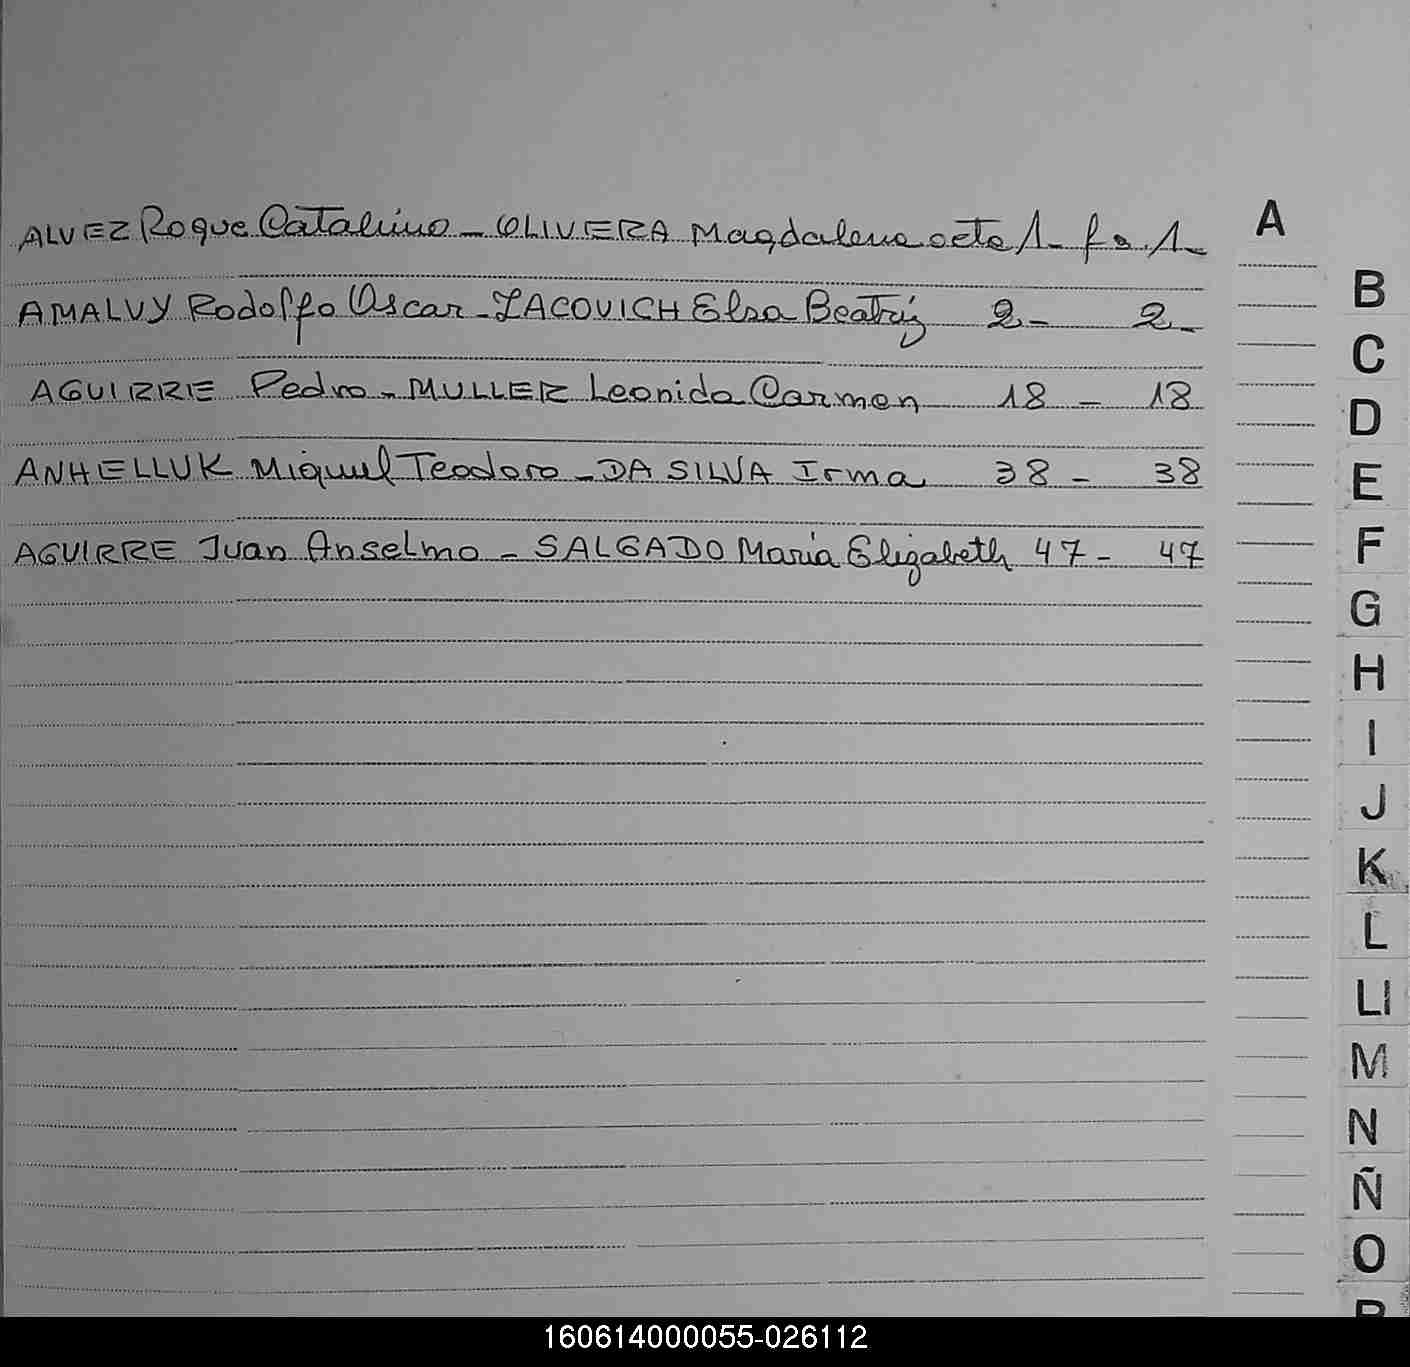 ALVEZ Roque Catalino - OLIVERA Magdalena acta 1- fo. 1-
AMALVY Rodolfo Oscar - IACOVICH Elsa Beatriz 2- 2-
AGUIRRE Pedro - MULLER Leonida Carmen 18 - 18
ANHELLUK Miguel Teodoro - DA SILVA Irma 38 - 38
AGUIRRE Juan Anselmo - SALGADO Maria Elizabeth 47 - 47
A
B
C
D
E
F
G
H
I
J
K
L
Ll
M
N
Ñ
O
P
160614000055-026112